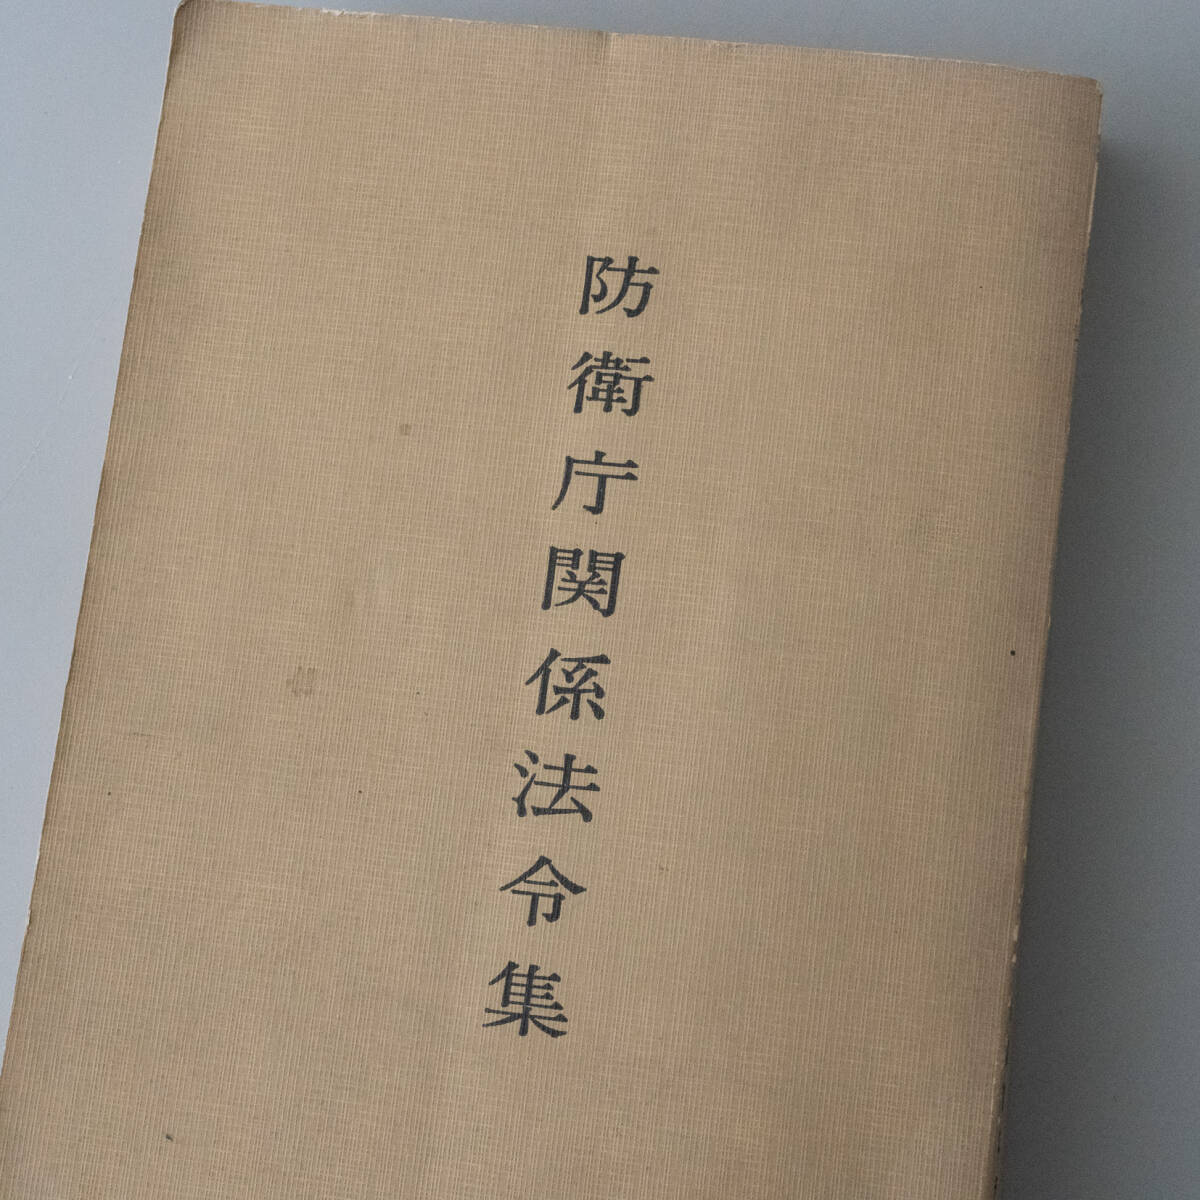 防衛庁関係法令集